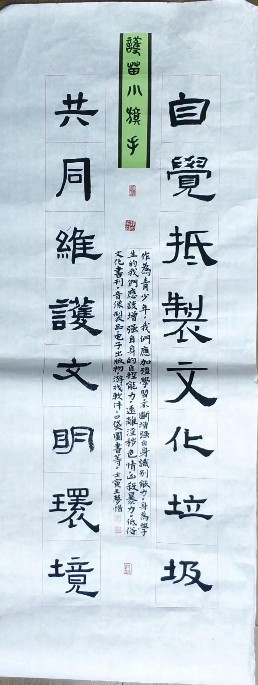 護苗小旗手
自覺抵製文化垃圾
共同維護文明環境
作為青少年，我們應加強學習，不斷增强自身識別能力，身為學
生的我們應該增强自身的自控能力，遠離淫秽色情凶殺暴力，低俗
文化書刊，音像製品，电子出版物游戏软件，口袋圖書等，壬寅王梦惜